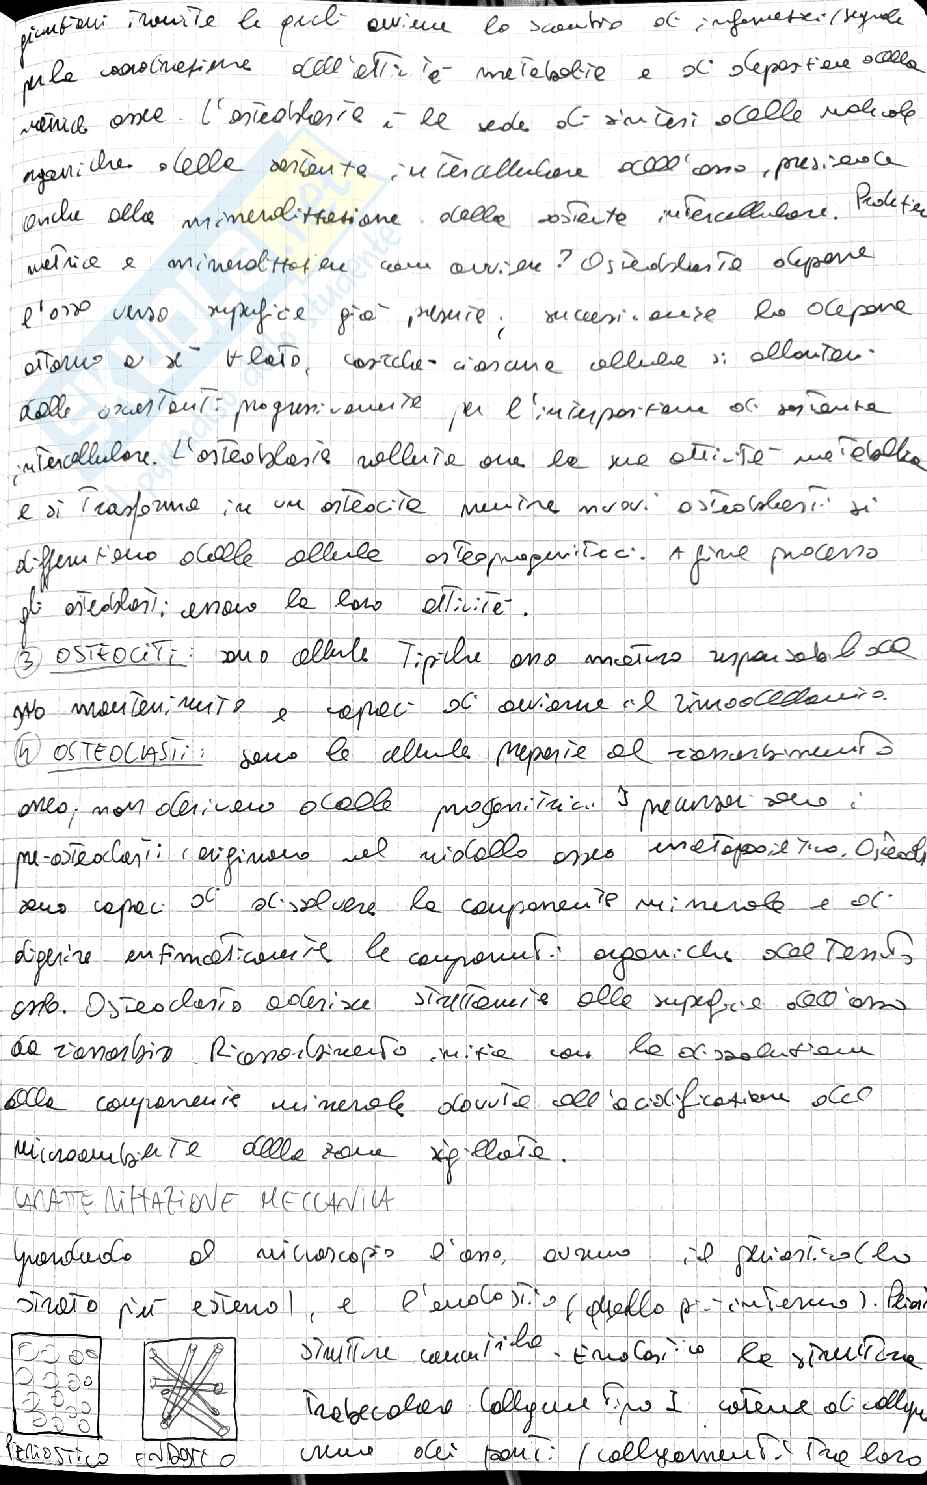 giunzioni tramite le quali avviene lo scambio di informazioni/segnale
per la coordinazione dell'attività metabolica e di deposizione della
matrice ossea. L'osteoblasta è la sede di sintesi delle molecole
organiche della sostanza intercellulare dell'osso, presiedente
anche alla mineralizzazione della sostanza intercellulare. Produzion
matrice e mineralizzazione come avviene? Osteoblasta depone
l'osso verso superficie già presente, successivamente lo depone
attorno a sé + lato, cosicché ciascuna cellula si allontana
dalle circostanti progressivamente per l'interposizione di sostanza
intercellulare. L'osteoblasta rallenta ora la sua attività metabolica
e si trasforma in un osteocita mentre nuovi osteoblasti si
differenziano dalle cellule osteoprogenitrici. A fine processo
gli osteoblasti cessano la loro attività.
③ OSTEOCITI: sono cellule tipiche osso maturo responsabili del
suo mantenimento e capaci di avviarne il rimodellamento.
④ OSTEOCLASTI: sono le cellule preposte al riassorbimento
osseo, non derivano dalle progenitrici. I precursori sono i
pre-osteoclasti (originano nel midollo osseo emetopoietico. Osteocl
sono capaci di dissolvere la componente minerale e di
digerire enzimaticamente le componenti organiche del tessuto
osseo. Osteoclasto aderisce strettamente alla superficie dell'osso
da riassorbire. Riassorbimento inizia con la dissoluzione
della componente minerale dovuta all'acidificazione del
microambiente della zona sigillata.
CARATTERIZZAZIONE MECCANICA
guardando al microscopio l'osso, avremo il periostio (lo
strato più esterno), e l'endostio (quello più interno). Periosti
strutture concentriche. Endostio la struttura
trabecolare. Collagene tipo I catene di collagene
sono dei ponti / collegamenti tra loro
PERIOSTICO ENDOSTICO